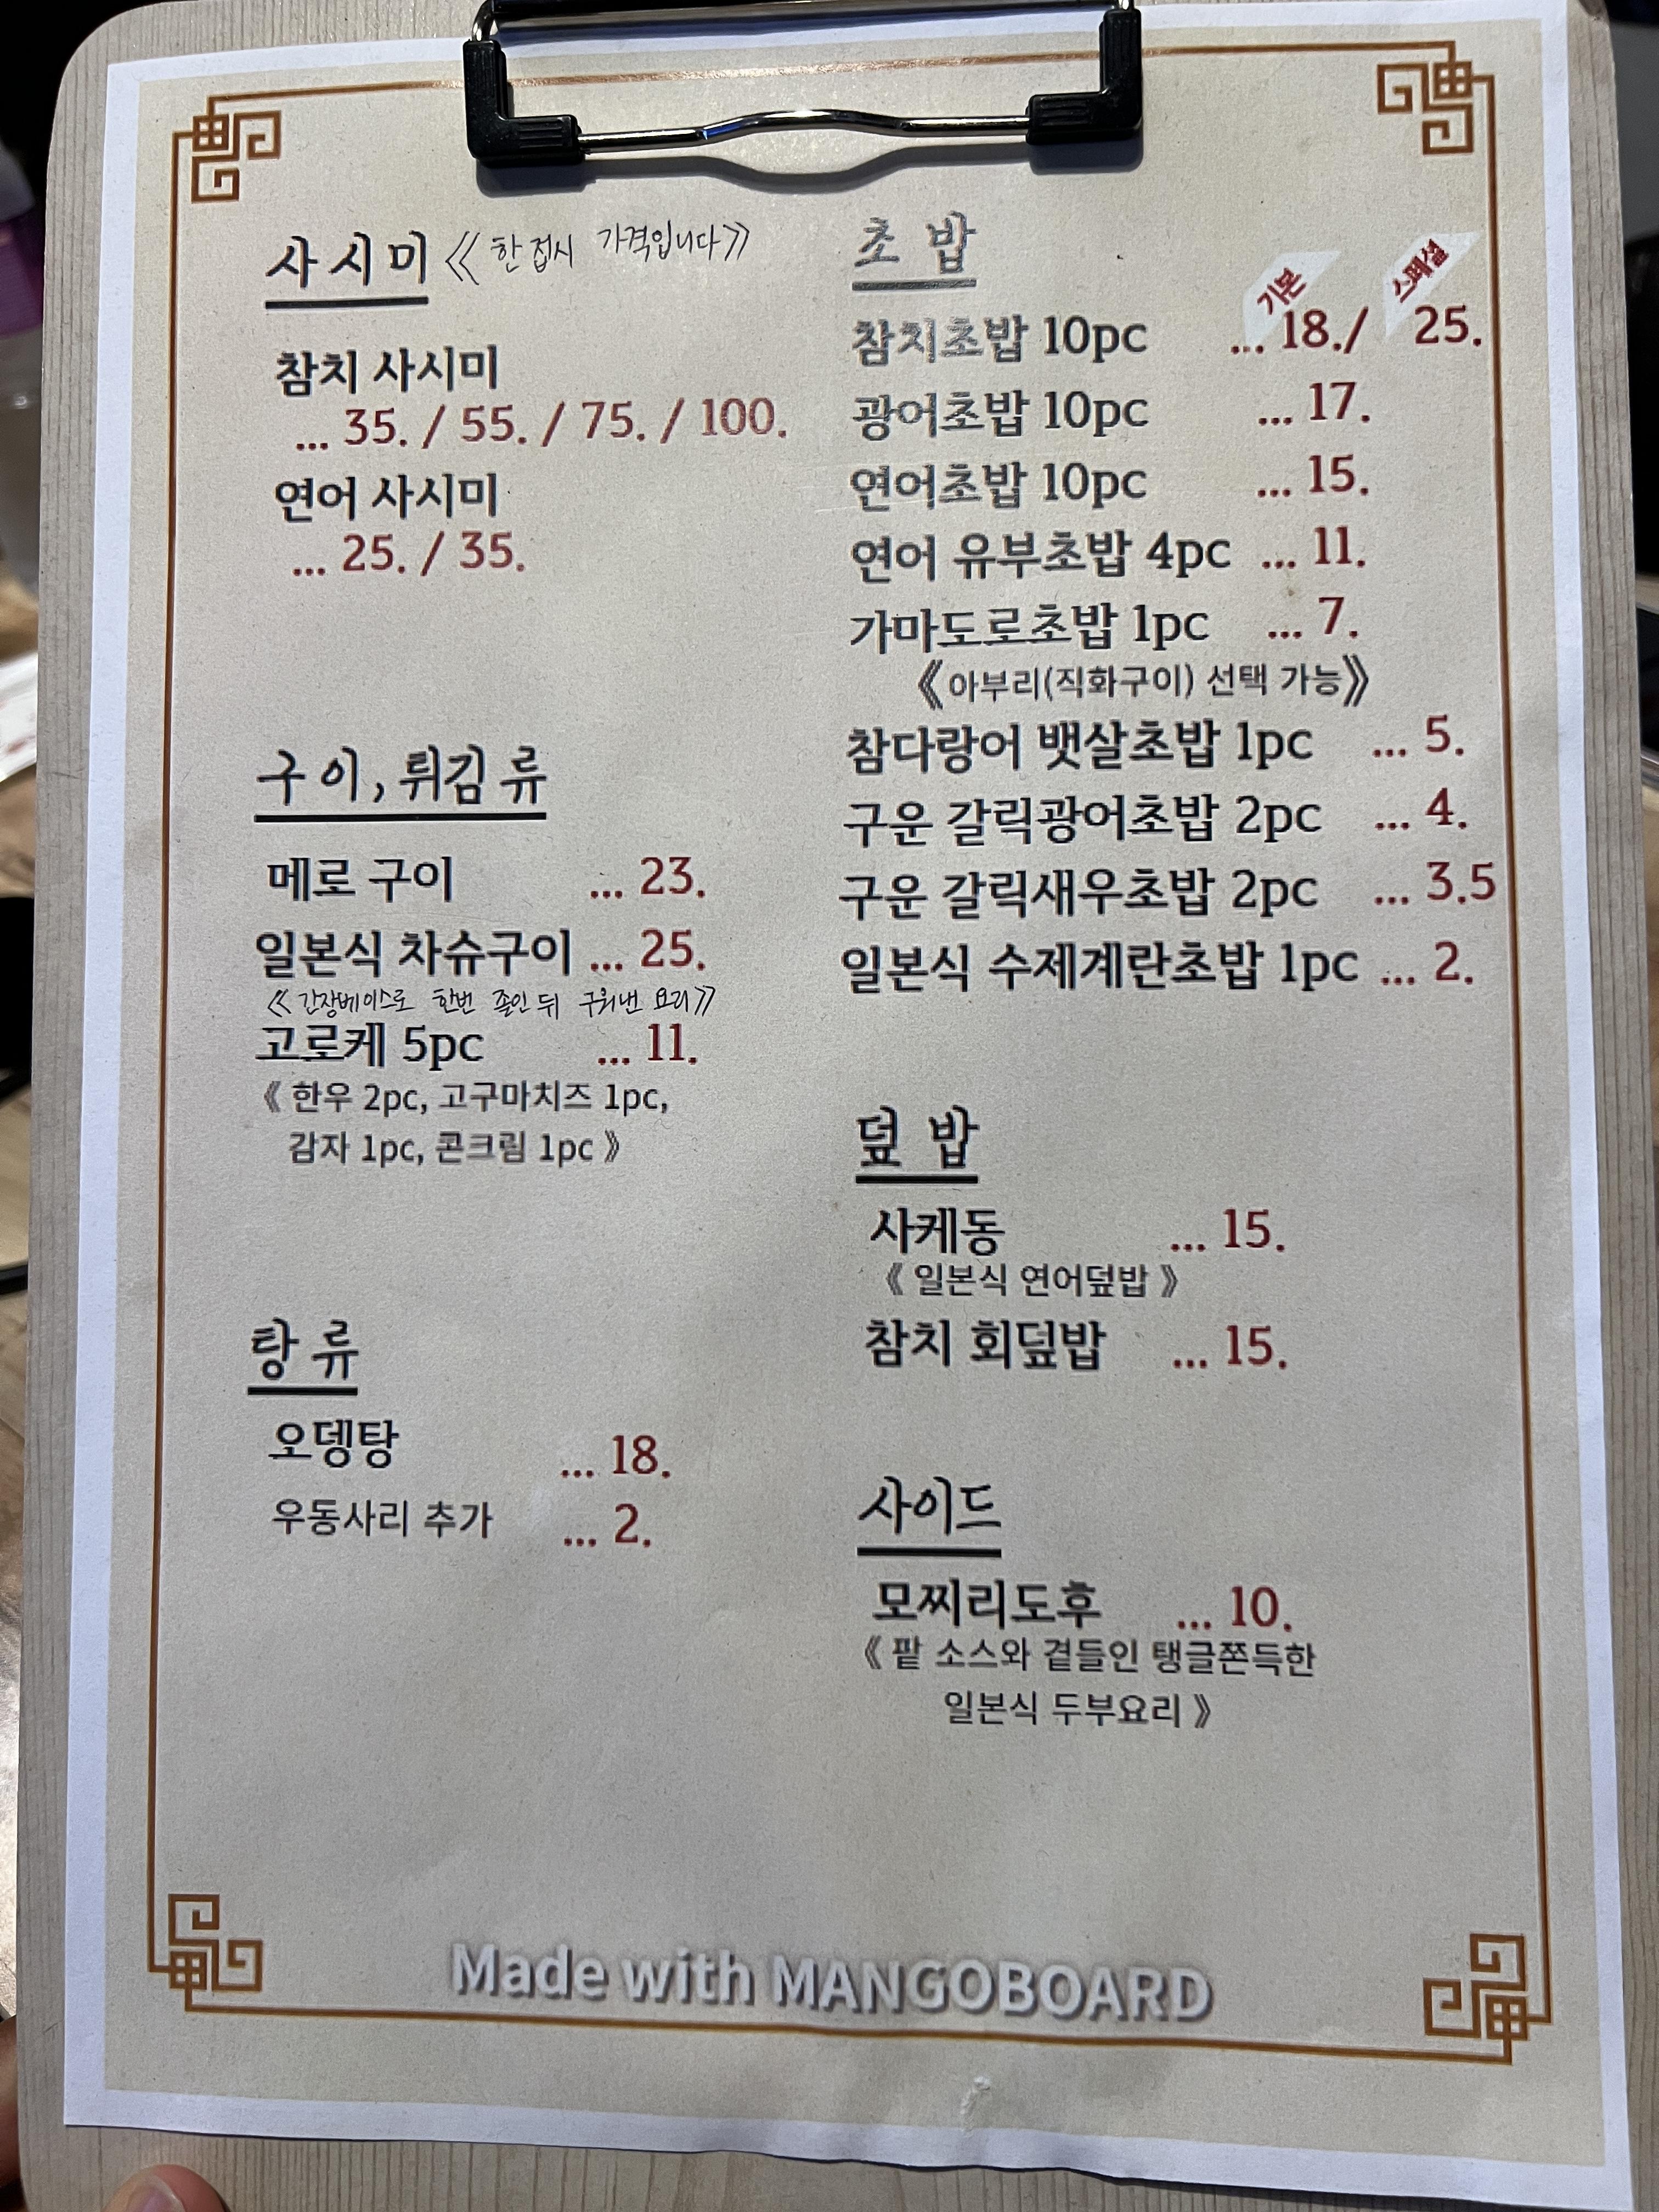 사시미 《 한 접시 가격입니다》
참치 사시미
... 35. / 55. / 75. / 100.
연어 사시미
... 25. / 35.
구이, 튀김류
메로 구이 ... 23.
일본식 차슈구이 ... 25.
《 간장베이스로 한번 졸인 뒤 구워낸 요리》
고로케 5pc ... 11.
《 한우 2pc, 고구마치즈 1pc,
감자 1pc, 콘크림 1pc 》
탕류
오뎅탕 ... 18.
우동사리 추가 ... 2.
초밥
기본 스페셜
참치초밥 10pc ... 18./ 25.
광어초밥 10pc ... 17.
연어초밥 10pc ... 15.
연어 유부초밥 4pc ... 11.
가마도로초밥 1pc ... 7.
《아부리(직화구이) 선택 가능》
참다랑어 뱃살초밥 1pc ... 5.
구운 갈릭광어초밥 2pc ... 4.
구운 갈릭새우초밥 2pc ... 3.5
일본식 수제계란초밥 1pc ... 2.
덮밥
사케동 ... 15.
《 일본식 연어덮밥 》
참치 회덮밥 ... 15.
사이드
모찌리도후 ... 10.
《 팥 소스와 곁들인 탱글쫀득한
일본식 두부요리 》
Made with MANGOBOARD